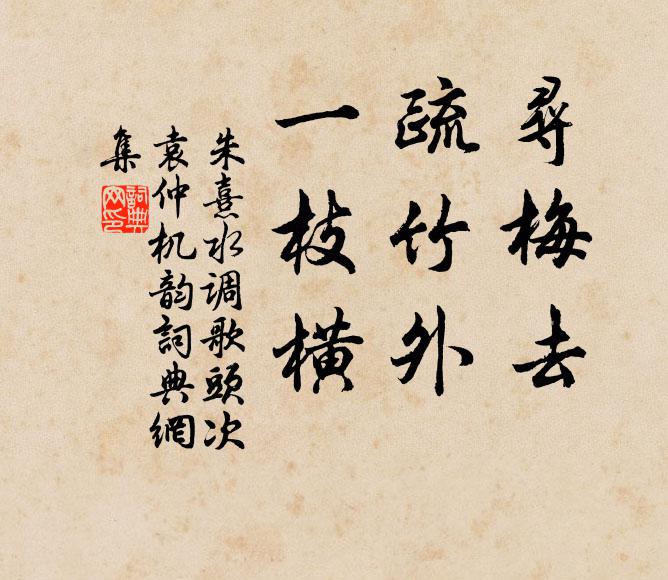 尋梅去
疏竹外
一枝橫
朱熹水调歌頭次
袁仲机韵詞典網
集
詞典網印